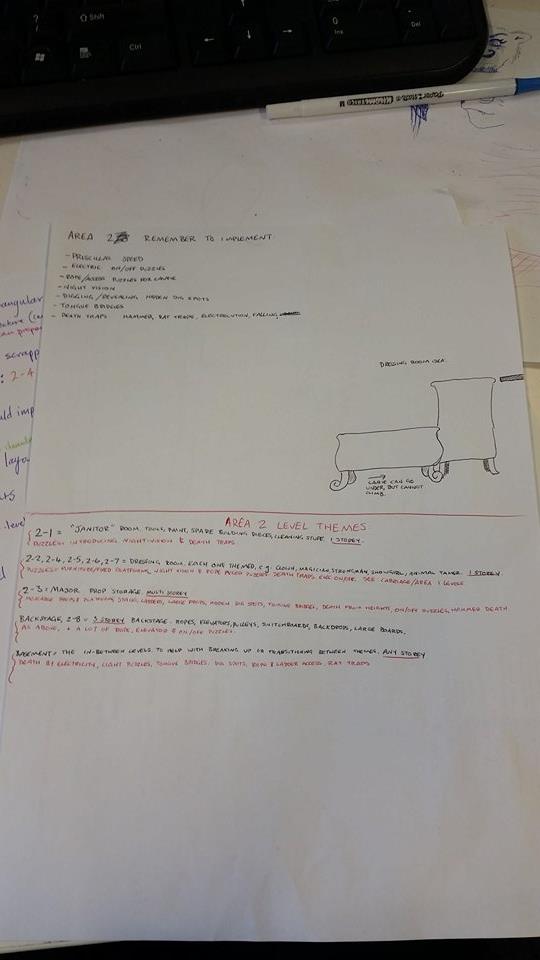 ?
/
Shift
Ctrl
0
Ins
.
Del
Paper Mate
KILOMETRICO M
AREA 2 REMEMBER TO IMPLEMENT:
- PRISCILLAS SPEED
- ELECTRIC ON/OFF PUZZLES
- ROPE/ACCESS PUZZLES FOR
- NIGHT VISION
- DIGGING / REVEALING HIDDEN DIG SPOTS
- TONGUE BRIDGES
- DEATH TRAPS HAMMER, RAT TRAPS, ELECTROCUTION, FALLING
angular
scrapp
: 2-4
uld imp
layou
level
DRESSING ROOM IDEA.
CAN GO
UNDER, BUT CANNOT
CLIMB.
AREA 2 LEVEL THEMES
2-1 = "JANITOR" ROOM, TOOLS, PAINT, SPARE BUILDING PIECES, CLEANING STUFF. 1 STOREY.
PUZZLES: INTRODUCING NIGHT VISION & DEATH TRAPS.
2-2, 2-4, 2-5, 2-6, 2-7 = DRESSING ROOM, EACH ONE THEMED, E.G. CLOWN, MAGICIAN, STRONGMAN, SHOWGIRL, ANIMAL TAMER. 1 STOREY
PUZZLES: PLATFORMS, NIGHT VISION & ROPE DEATH TRAPS SEE: CARRIAGE/AREA 1 LEVELS
2-3 = MAJOR PROP STORAGE, MULTI STOREY
MOVEABLE LADDERS, LARGE PROPS, HIDDEN DIG SPOTS, TONGUE DEATH FROM HEIGHTS ON/OFF PUZZLES, HAMMER DEATH
BACKSTAGE, 2-8 = 3 STOREY BACKSTAGE. ROPES, ELEVATORS, PULLEYS, SWITCHBOARDS, BACKDROPS, LARGE BOARDS,
AS ABOVE, + A LOT OF ROPE, ELEVATOR & ON/OFF PUZZLES.
BASEMENT = THE IN-BETWEEN LEVELS. TO HELP WITH BREAKING UP OR TRANSITIONING BETWEEN THEMES. ANY STOREY
DEATH BY ELECTRICITY, LIGHT PUZZLES, TONGUE BRIDGES, DIG SPOTS, ROPE & LADDER ACCESS, RAT TRAPS